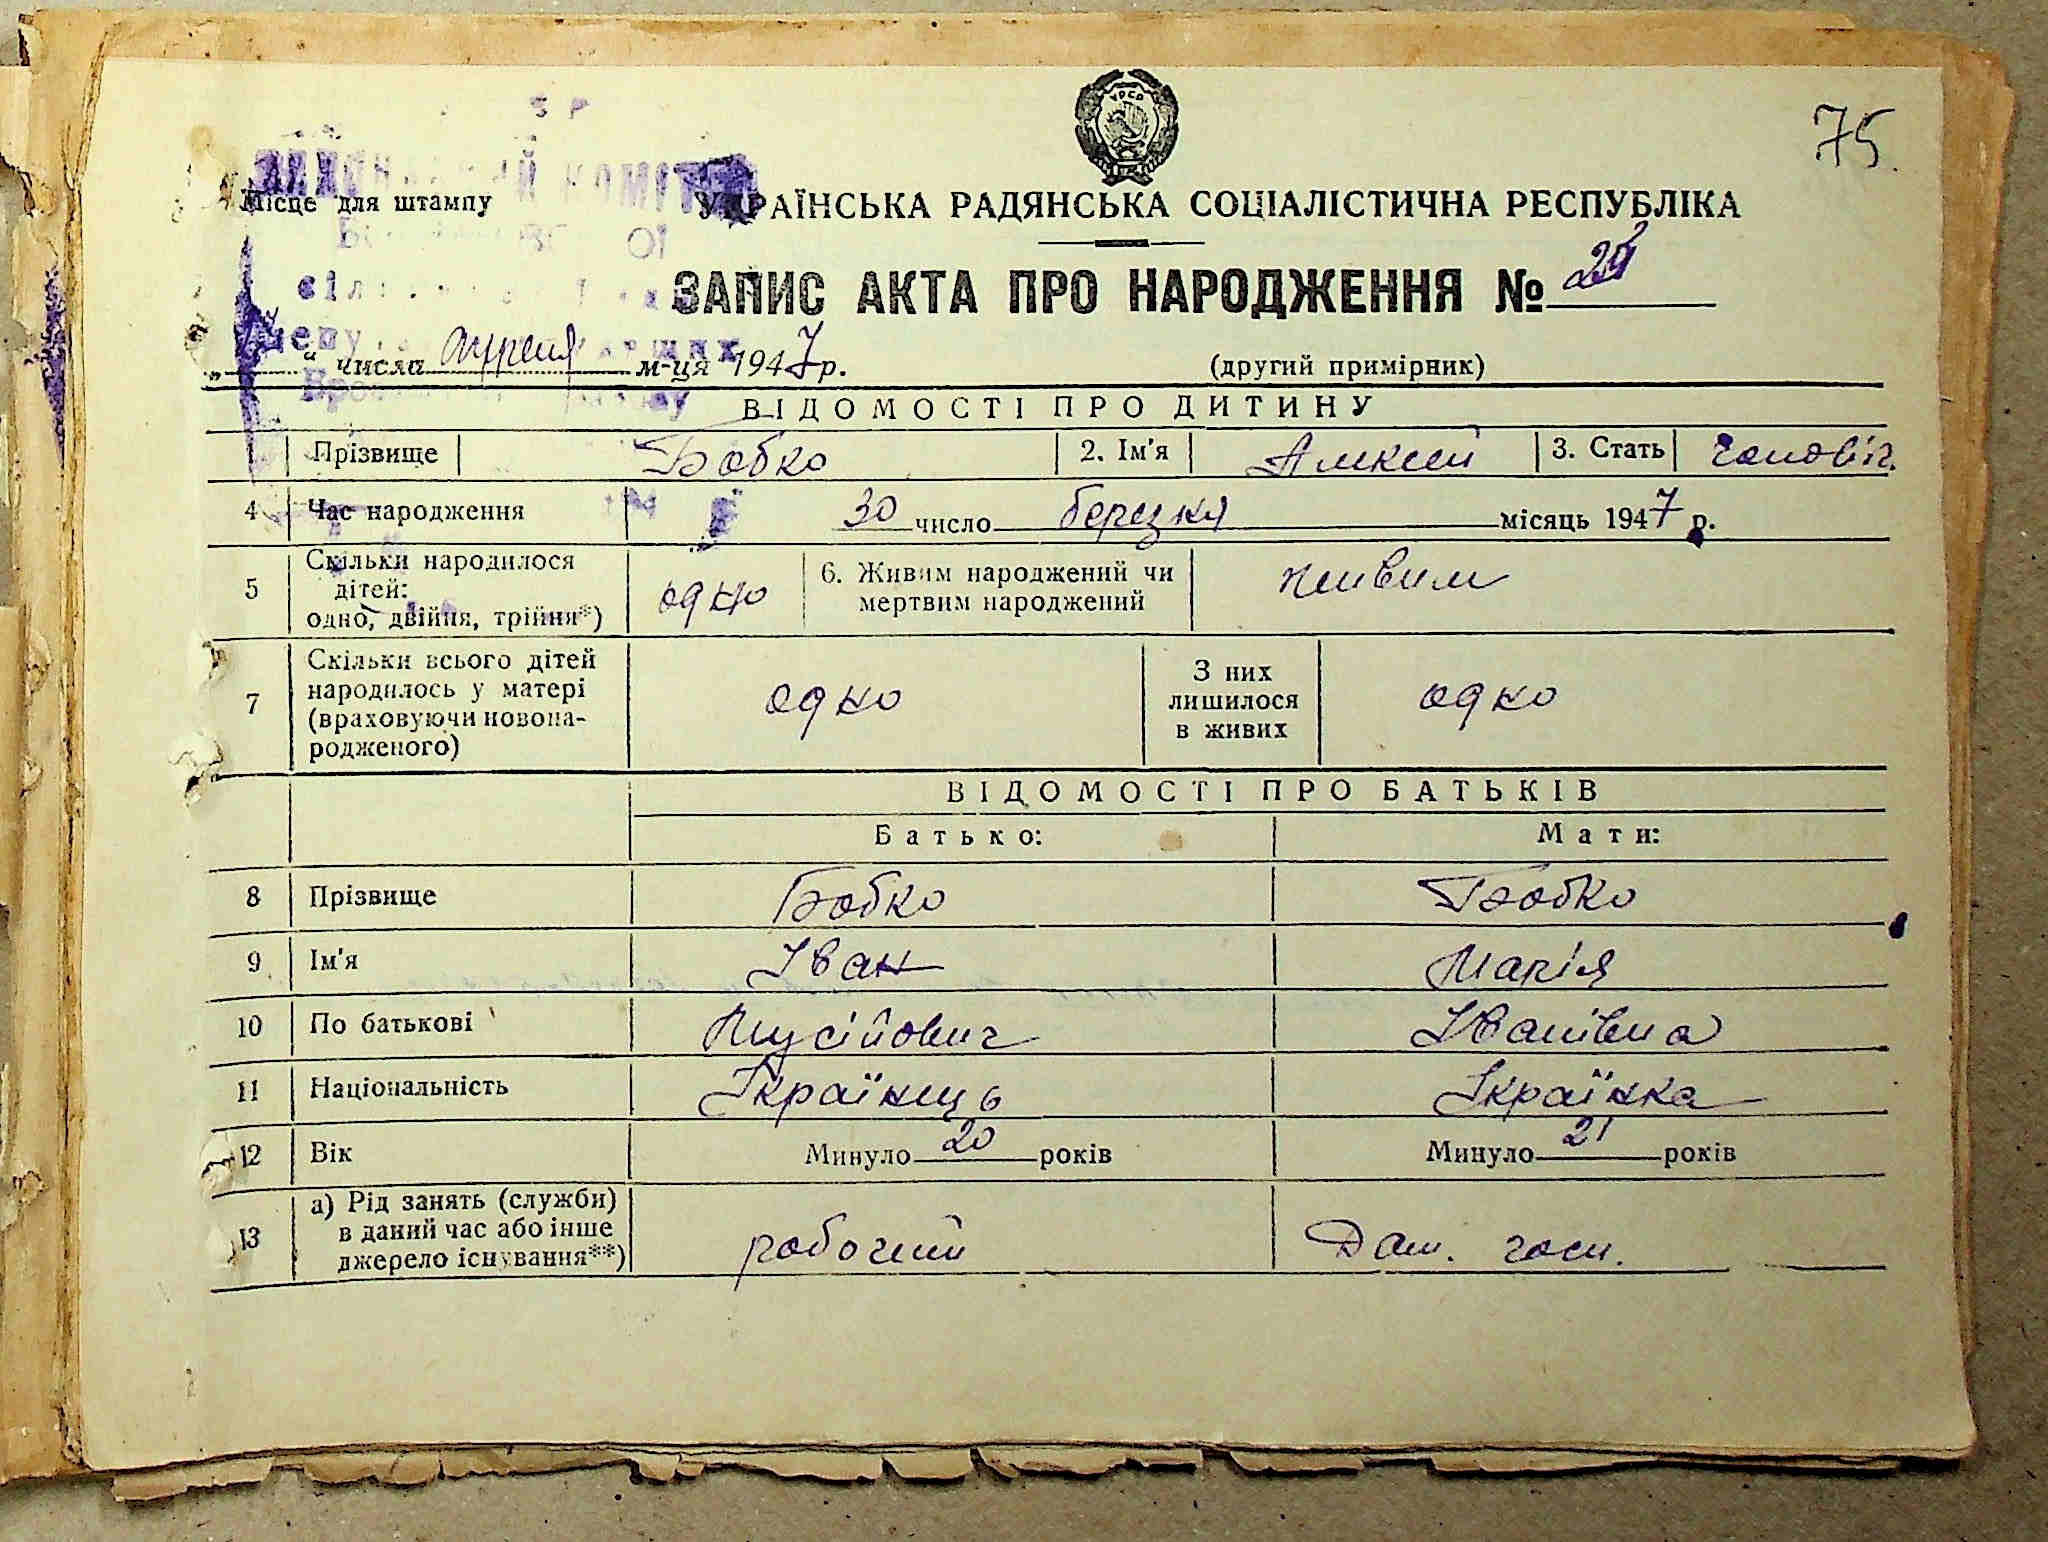 75
УРСР
Місце для штампу
УКРАЇНСЬКА РАДЯНСЬКА СОЦІАЛІСТИЧНА РЕСПУБЛІКА
ЗАПИС АКТА ПРО НАРОДЖЕННЯ №
числа м-ця 1947 р.
(другий примірник)
ВІДОМОСТІ ПРО ДИТИНУ
1 Прізвище Бобко 2. Ім'я Алексей 3. Стать чоловіч.
4 Час народження 30 число березня місяць 1947 р.
5 Скільки народилося дітей: одно, двійня, трійня*) одно 6. Живим народжений чи мертвим народжений живим
7 Скільки всього дітей народилось у матері (враховуючи новонародженого) одно З них лишилося в живих одно
ВІДОМОСТІ ПРО БАТЬКІВ
Батько: Мати:
8 Прізвище Бобко Бобко
9 Ім'я Іван Марія
10 По батькові Мусійович Іванівна
11 Національність Українець Українка
12 Вік Минуло 20 років Минуло 21 років
13 а) Рід занять (служби) в даний час або інше джерело існування**) робочий Дом. госп.